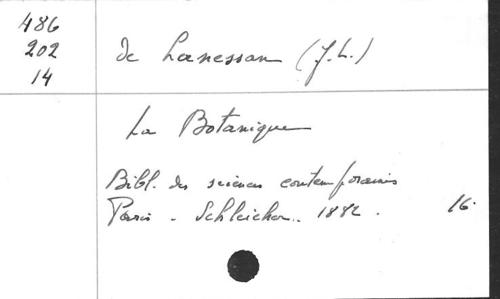 486
202
14
de Lanessan (J.L.)
La Botanique
Bibl. des sciences contemporaines
Paris - Schleicher.. 1882. 16.